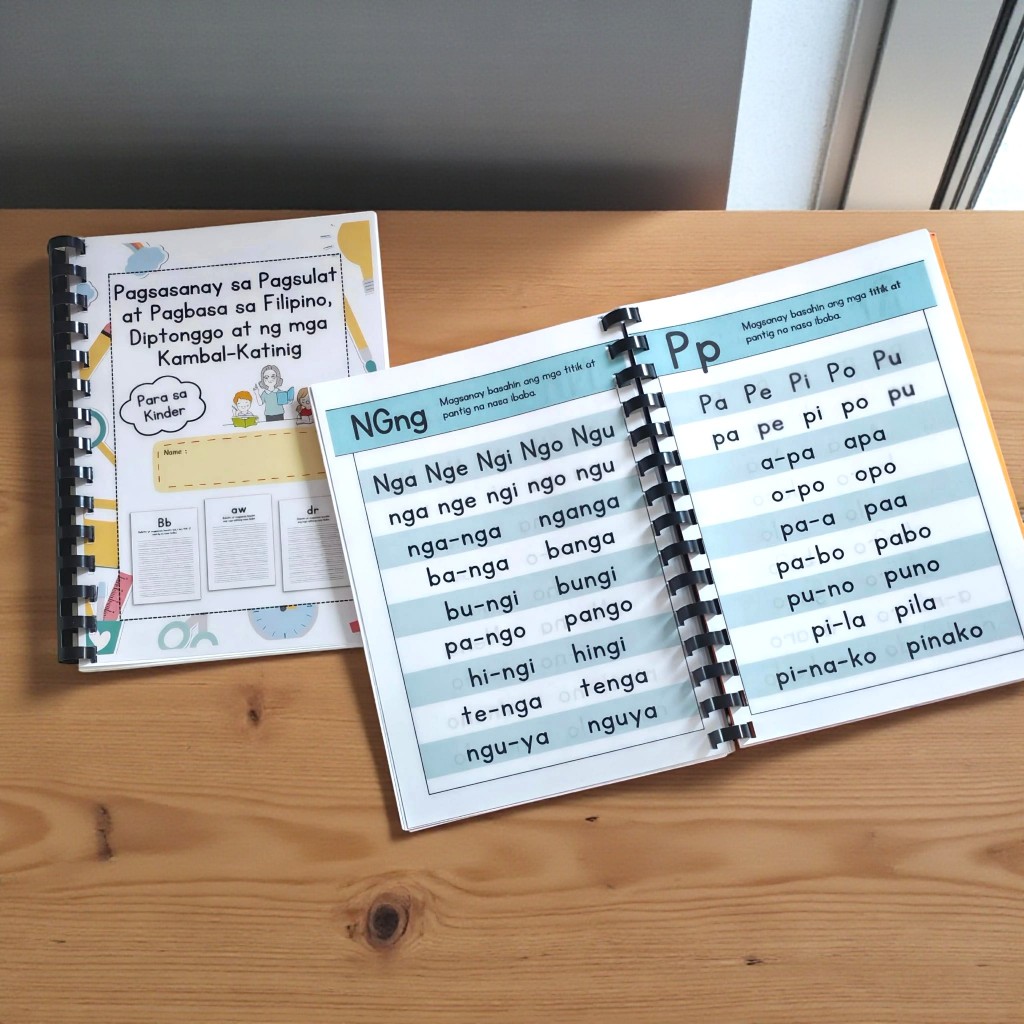 Pagsasanay sa Pagsulat
at Pagbasa sa Filipino,
Diptonggo at ng mga
Kambal-Katinig
Para sa
Kinder
Name :
Bb
aw
dr
NGng
Magsanay basahin ang mga titik at
pantig na nasa ibaba.
Nga Nge Ngi Ngo Ngu
nga nge ngi ngo ngu
nga-nga nganga
ba-nga banga
bu-ngi bungi
pa-ngo pango
hi-ngi hingi
te-nga tenga
ngu-ya nguya
Pp
Magsanay basahin ang mga titik at
pantig na nasa ibaba.
Pa Pe Pi Po Pu
pa pe pi po pu
a-pa apa
o-po opo
pa-a paa
pa-bo pabo
pu-no puno
pi-la pila
pi-na-ko pinako